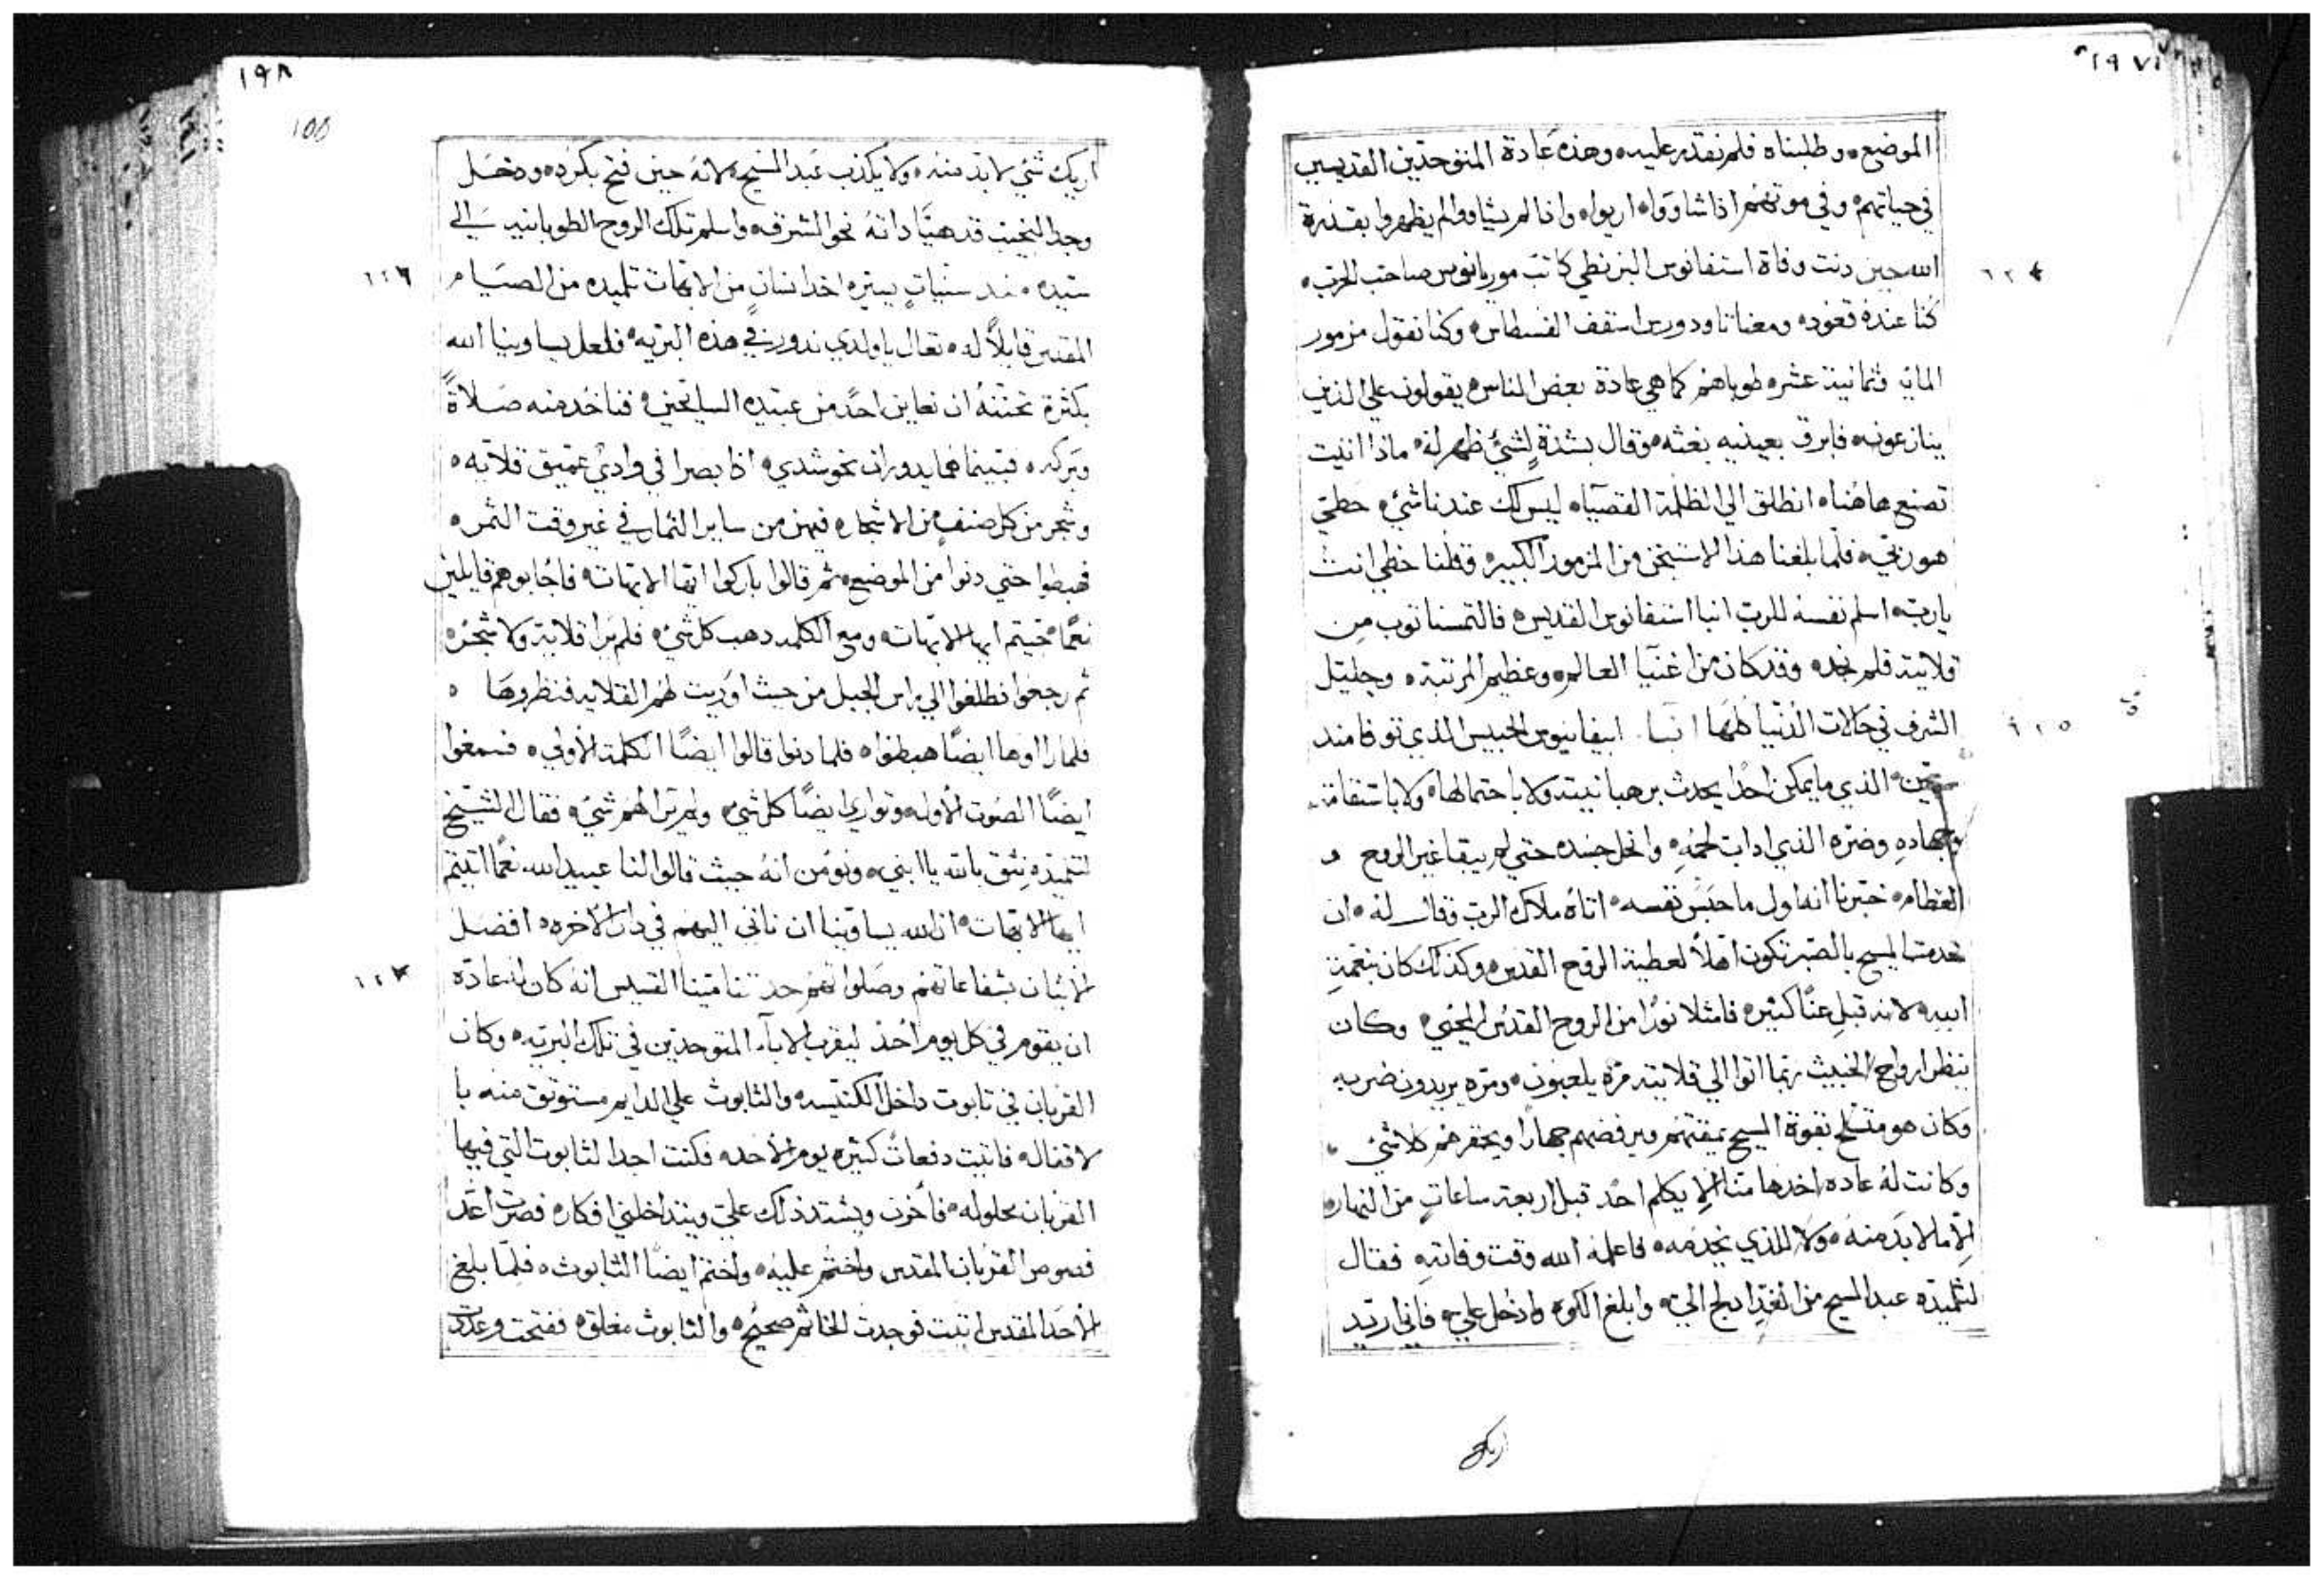 ١٩٧
الموضع ۰ وطلبناه فلم نقدر عليه ۰ وهذه عادة المتوحدين القديسين
في حياتهم ۰ وفي موتهم اذا شاووا ۰ اريوا ۰ واذا لم يشاووا لم يظهروا بقدرة
الله حين دنت وفاة استفانوس البزنطي كاتب موريانوس صاحب الحرب ۰
٦٢٤
كنا عنده قعود ۰ ومعنا تاودورس اسقف الفسطاس ۰ وكنا نقول مزمور
الماية وثمانية عشر ۰ طوباهم كما هي عادة بعض الناس يقولون علي الذين
ينازعون ۰ فابرق بعينيه بغته ۰ وقال بشدة لشيء ظهر له ۰ ماذا اتيت
تصنع هاهنا ۰ انطلق الي الظلمة القصيا ۰ ليس لك عندنا شيء ۰ حظي
هو ربي ۰ فلما بلغنا هذا الاستيخن من المزمور الكبير ۰ وقلنا حظي انت
يارب ۰ اسلم نفسه للرب انبا استفانوس القديس ۰ فالتمسنا توب من
قلايته فلم نجد ۰ وقد كان من اغنيا العالم ۰ وعظيم المرتبة ۰ وجليل
الشرف في حالات الدنيا كلها انبا ابيفانيوس الحبيس الذي توفا مند
٦٢٥
الذي ما يمكن احدا يحدث برهبانيته ولا باحتمالها ۰ ولا باستقامة
وجهاده وضره الذي اداب لحمه ۰ وانحل جسده حتي لم يبقا غير الروح و
العظام ۰ خبرنا انه اول ما حبس نفسه ۰ اتاه ملاك الرب وقال له ۰ ان
خدمت المسيح بالصبر تكون اهلا لعطية الروح القدس ۰ وكذلك كان بنعمة
ابيه ۰ لانه قبل عنا كثير ۰ فامتلا نورا من الروح القدس المحيي ۰ وكان
ينظر ارواح الخبيث ربما اتوا الي قلايته مره يلعبون ۰ ومره يريدون ضربه
وكان هو متسلح بقوة المسيح يمقتهم ويرفضهم جهارا ويحقرهم كلا شيء ۰
وكانت له عاده اخدها منا الا يكلم احد قبل اربعة ساعات من النهار ۰
الا ما لا بد منه ۰ ولا للذي يخدمه ۰ فاعلمه الله وقت وفاته فقال
لتلميده عبد المسيح من الغد ادلج الي ۰ وابلغ الكوه وادخل علي ۰ فاني اريد
اريك
١٩٨
155
اريك شيء لا بد منه ۰ ولا يكذب عبد المسيح ۰ لانه حين فتح بكره ۰ ودخل
وجد النجيب قد هيا داته نحو المشرق ۰ واسلم تلك الروح الطوبانيه الي
سيده ۰ مند سنيات يسيره اخد انسان من الابهات تلميده من الصيام
٦٢٦
المقدس قايلا له ۰ تعال يا ولدي ندور في هذه البريه ۰ فلعل يساوينا الله
بكثرة تحننه ان نعاين احد من عبيده السايحين ۰ فناخد منه صلاة
وبركه ۰ فبينما هما يدوران نحو شدي ۰ اذا بصرا في وادي عميق قلايه ۰
وشجر من كل صنف من الاشجار ۰ فيهن من ساير الثمار في غير وقت الثمر ۰
فهبطوا حتي دنوا من الموضع ۰ ثم قالوا باركوا ايها الابهات ۰ فاجابوهم قايلين
نعما جيتم ايها الابهات ۰ ومع الكلمه دهب كل شيء ۰ فلم يرا قلايه ولا شجر ۰
ثم رجعوا فطلعوا الي راس الجبل من حيث اوريت لهم القلايه فنظروها ۰
فلما راوها ايضا هبطوا ۰ فلما دنوا قالوا ايضا الكلمة الاولي ۰ فسمعوا
ايضا الصوت الاول ۰ وتواري ايضا كل شيء ۰ ولم ترا لهم شيء ۰ فقال الشيخ
لتلميده نثق بالله يا ابني ۰ ونومن انه حيث قالوا لنا عبيد الله نعما اتيتم
ايها الابهات ۰ ان الله يساوينا ان ناتي اليهم في دار الاخره ۰ افضل
الاتيان بشفاعاتهم وصلواتهم حدتنا مينا القسيس انه كان له عادة
٦٢٧
ان يقوم في كل يوم احد ليقرب الاباء المتوحدين في تلك البريه ۰ وكان
القربان في تابوت داخل الكنيسه والتابوت علي الدايم مستوثق منه با
لاقفال ۰ فاتيت دفعات كثيره يوم الاحد ۰ فكنت اجد التابوت التي فيها
القربان محلوله ۰ فأحزن ويشتد ذلك علي ويتداخلني افكار ۰ فصرت اعد
فصوص القربان المقدس واختم عليه ۰ واختم ايضا التابوت ۰ فلما بلغ
الاحد المقدس اتيت فوجدت الخاتم صحيح ۰ والتابوت مغلق ۰ ففتحت وعددت